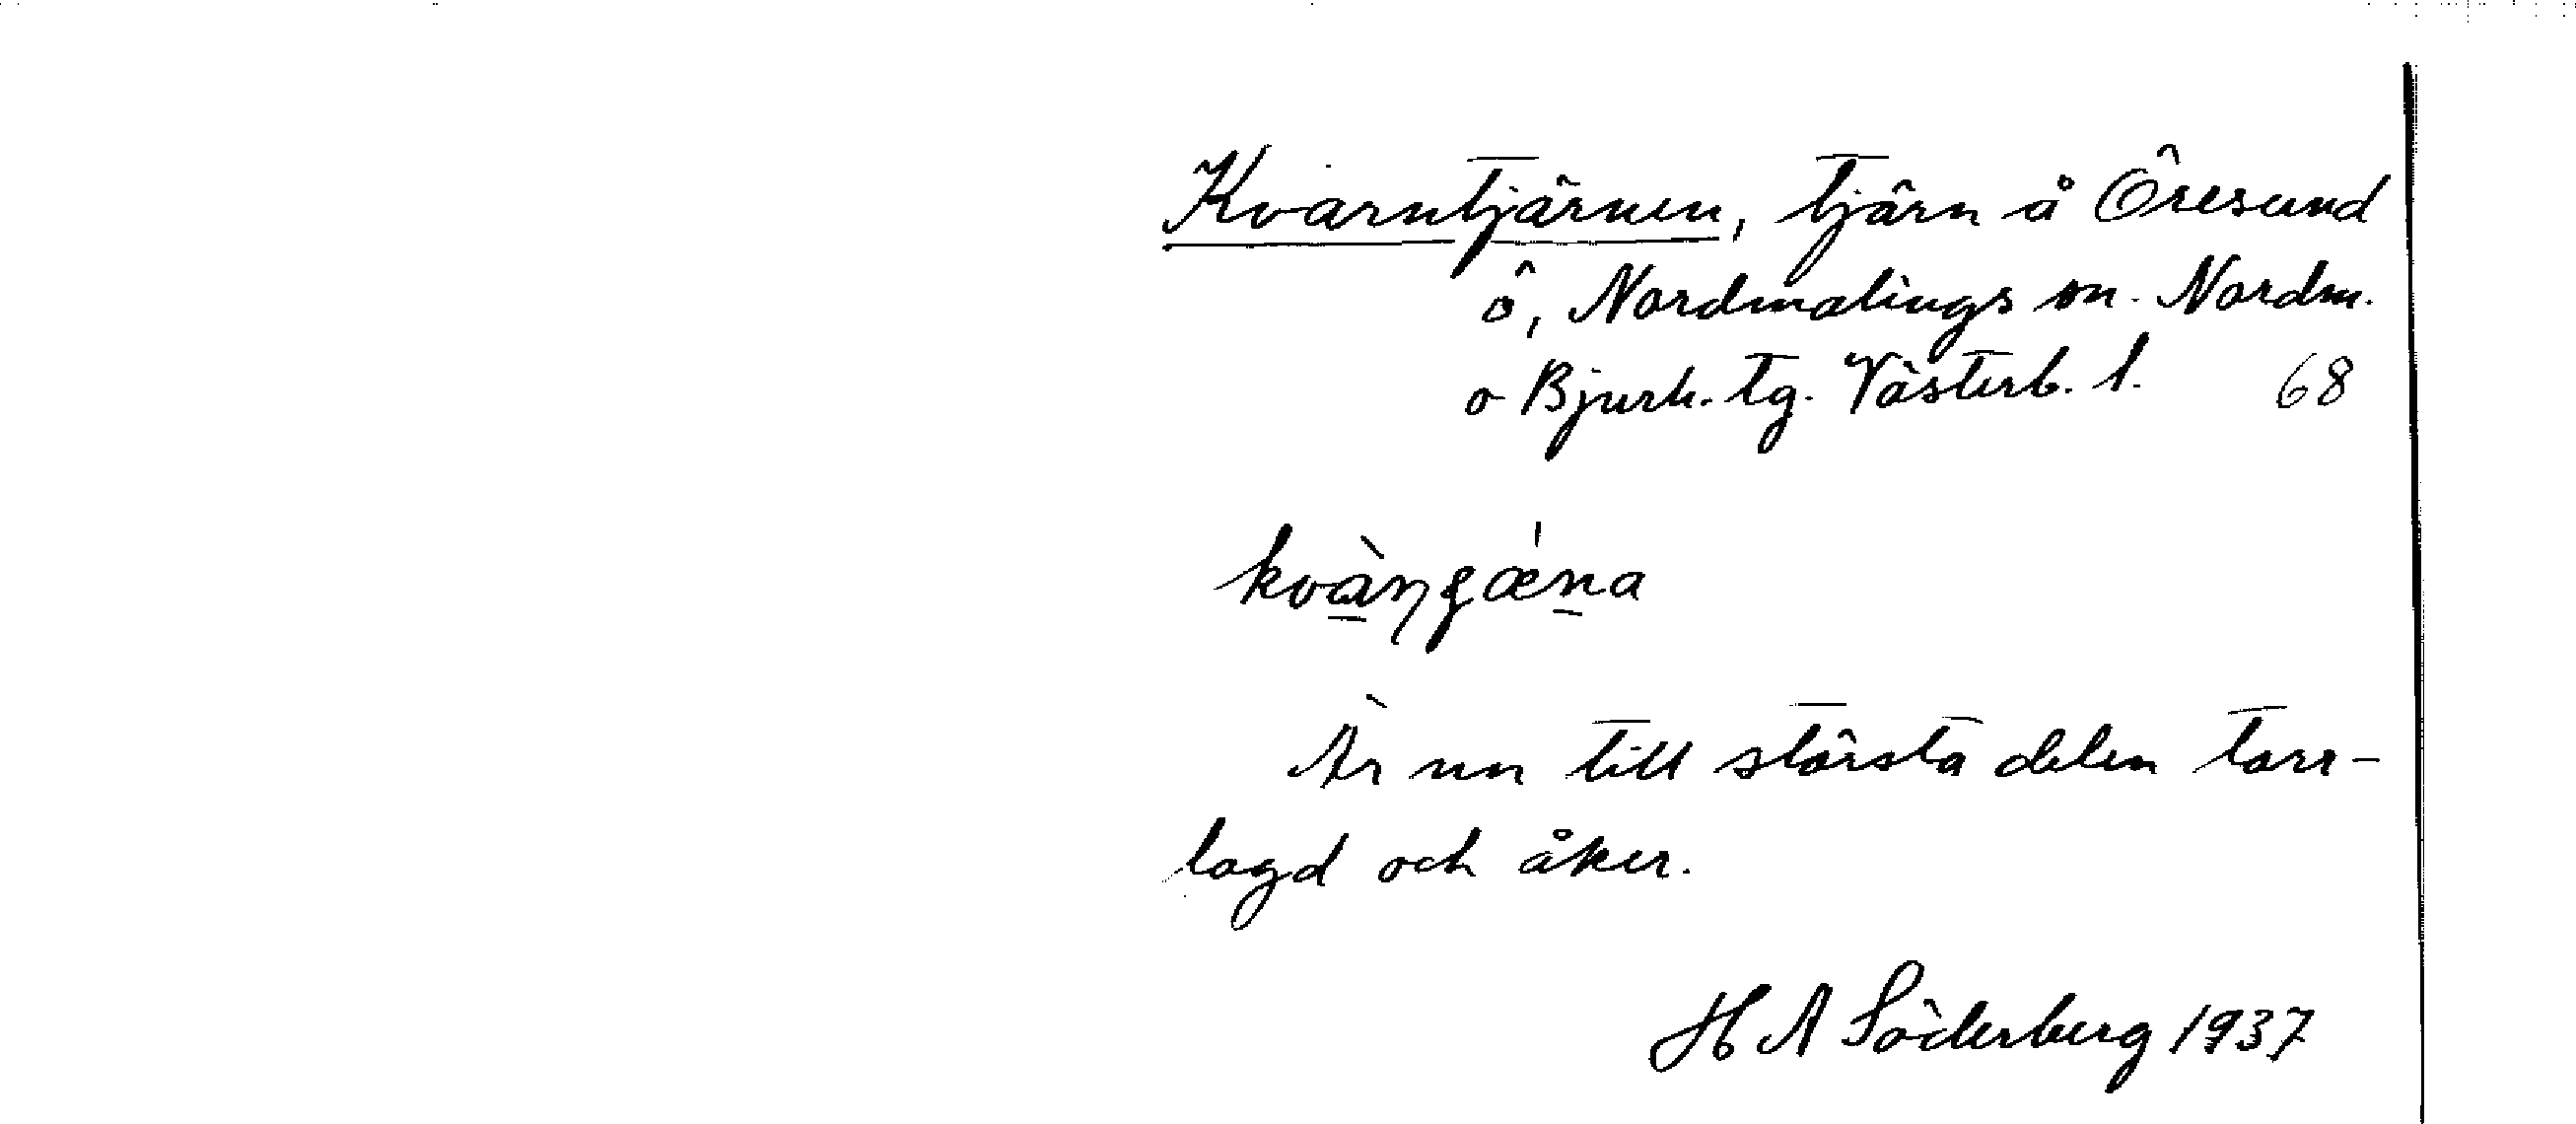 Kvarntjärnen, tjärn å Öresund
ö, Nordmalings sn. Nordm.
o Bjurh. tg. Västerb. l. 68
Är nu till största delen torr-
lagd och åker.
H A Söderberg 1937